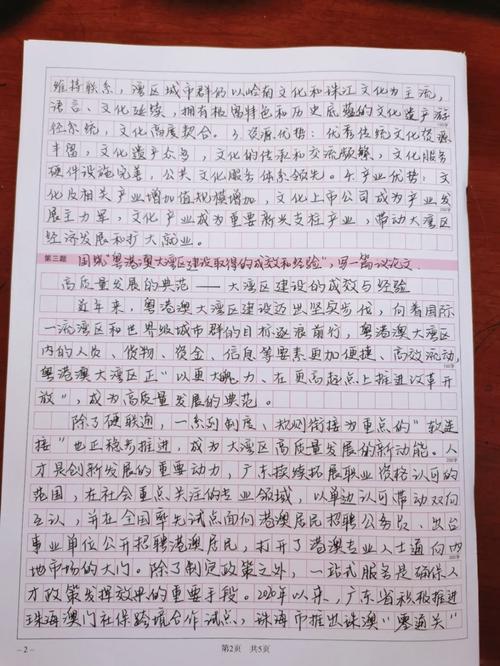 维持联系，湾区城市群的以岭南文化和珠江文化为主流，
语言、文化延续，拥有极富特色和历史底蕴的文化遗产游
径系统，文化高度契合。3.资源优势：优秀传统文化资源
丰富，文化遗产众多，文化的传承和交流频繁，文化服务
硬件设施完善，公共文化服务体系领先。4.产业优势：文
化及相关产业增加值规模增加，文化上市公司成为产业发
展主力军，文化产业成为重要新兴支柱产业，带动大湾区
经济发展和扩大就业。
第三题 围绕"粤港澳大湾区建设取得的成效和经验"，写一篇议论文.
高质量发展的典范——大湾区建设的成效与经验
近年来，粤港澳大湾区建设迈出坚实步伐，向着国际
一流湾区和世界级城市群的目标逐浪前行，粤港澳大湾区
内的人员、货物、资金、信息等要素更加便捷、高效流动，
粤港澳大湾区正"以更大魄力、在更高起点上推进改革开
放"，成为高质量发展的典范。
除了硬联通，一系列制度、规则衔接为重点的"软连
接"也正稳步推进，成为大湾区高质量发展的新动能。人
才是创新发展的重要动力，广东持续拓展职业资格认可的
范围，在社会重点关注的专业领域，以单边认可带动双向
互认，并在全国率先试点面向港澳居民招聘公务员、出台
事业单位公开招聘港澳居民，打开了港澳专业人士通向内
地市场的大门。除了制定政策之外，一站式服务是确保人
才政策发挥效果的重要手段。2020年以来，广东省积极推进
珠海澳门社保跨境合作试点，珠海市推出珠澳"零通关"
-2- 第2页 共5页